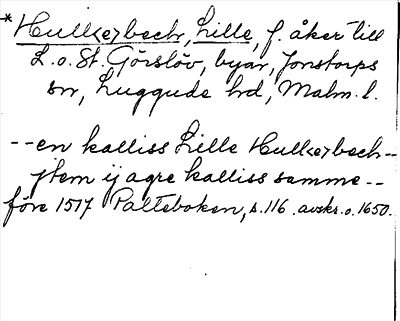 *Hulkezbech, Lille, f. åker till
L. o. St. Görslöv, byar, Jonstorps
sn, Luggude hd, Malm. l.
--en kalliss Lille Hulkezbech--
jtem ij agre kalliss samme--
före 1517 Palteboken, s. 116. avskr. o. 1650.